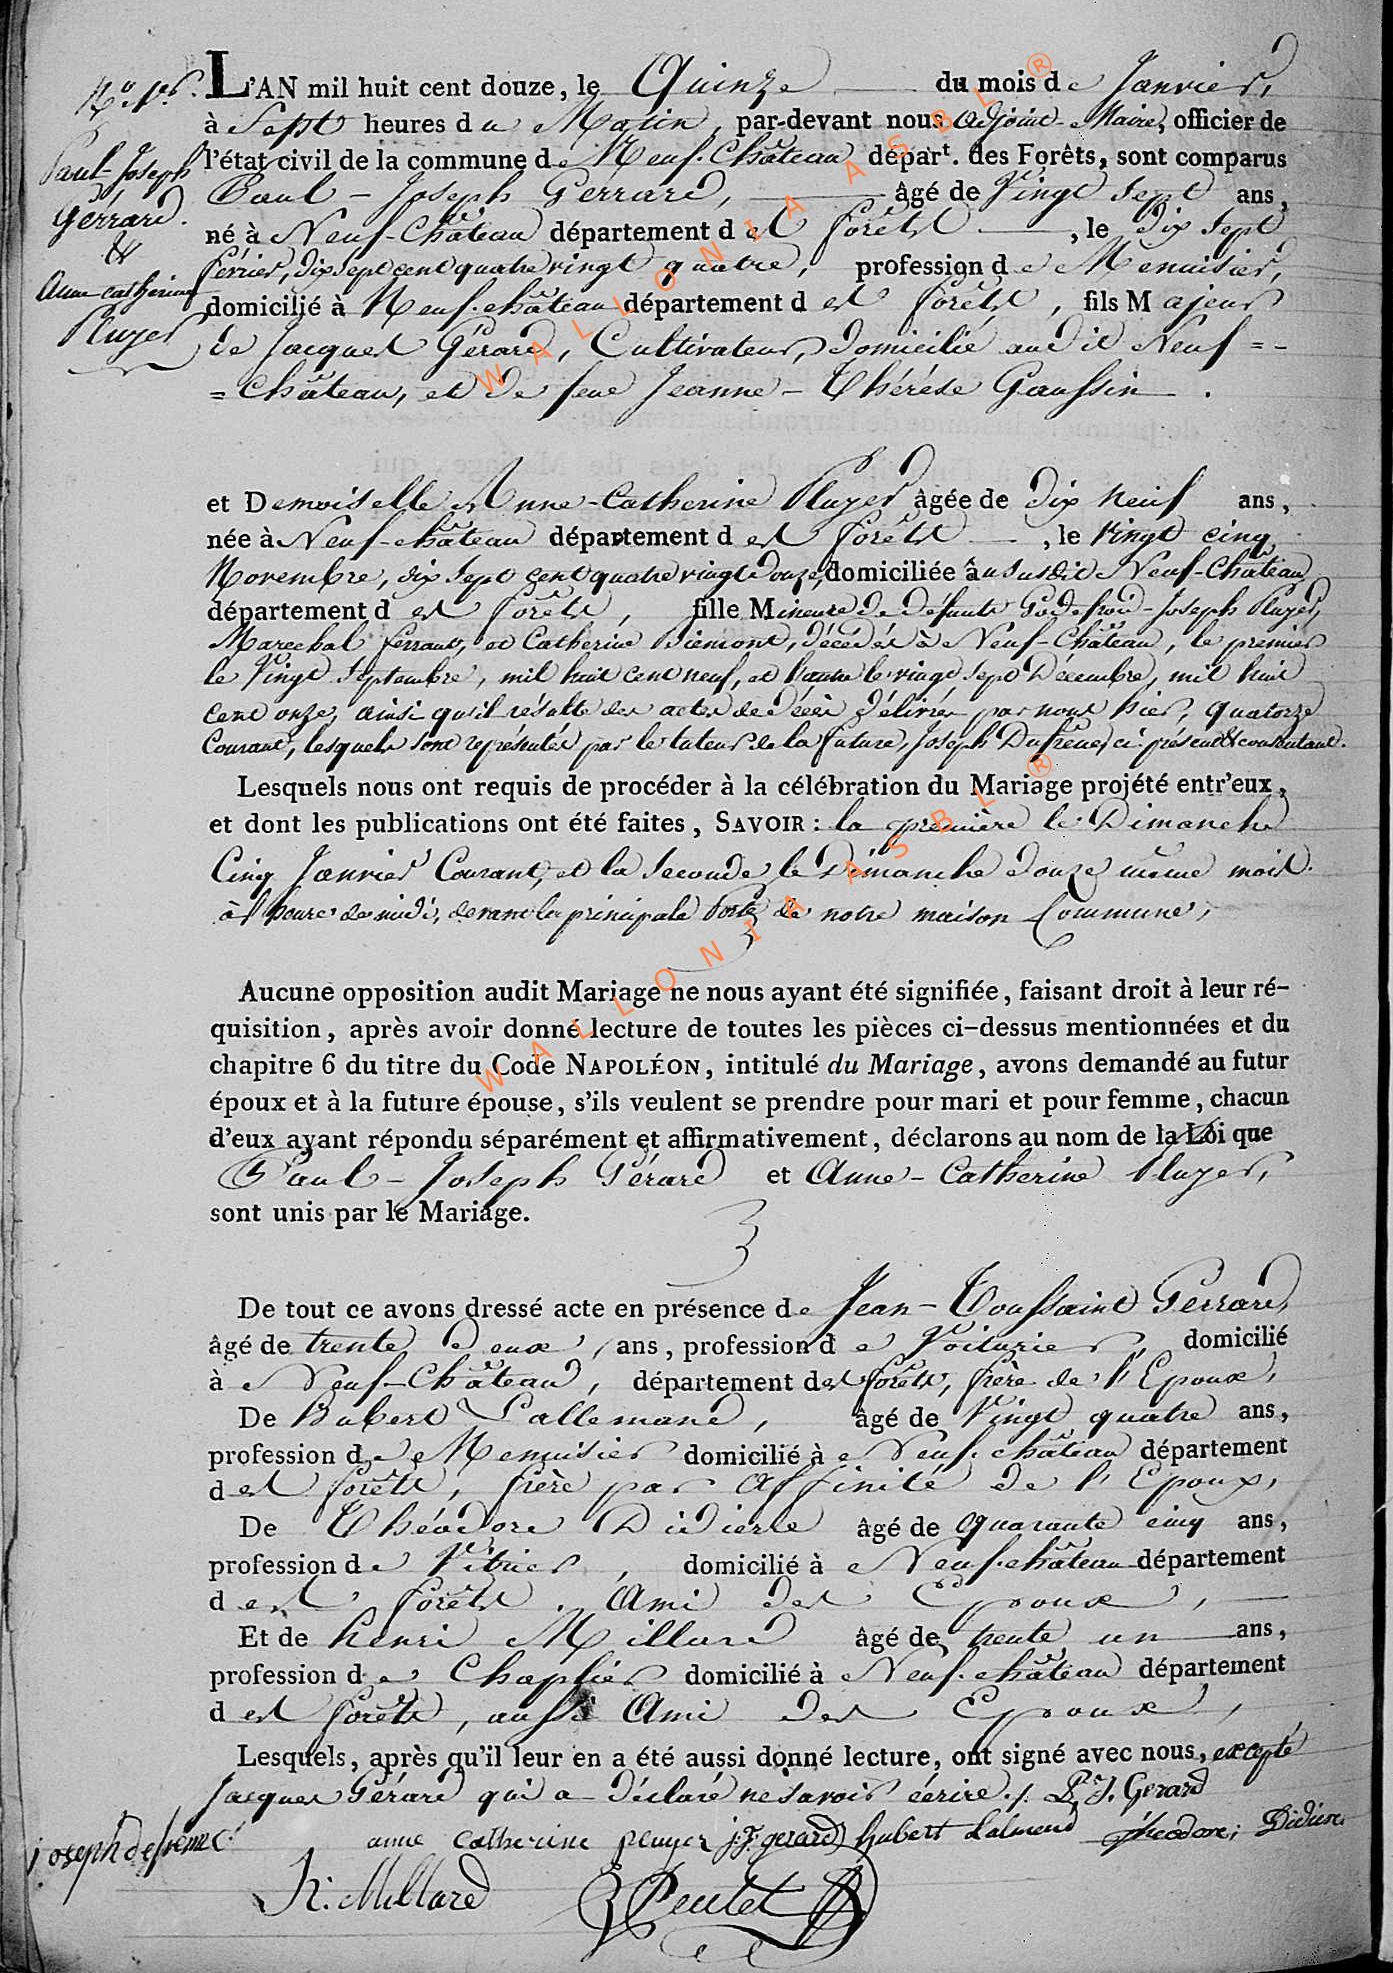 N.o 1er.
Paul-Joseph
Gérrard.
&
Anne-catherine
Pluyer
L'AN mil huit cent douze, le Quinze du mois de Janvier,
à Sept heures du Matin, par-devant nous adjoint-Maire, officier de
l'état civil de la commune de Neuf-Château départ. des Forêts, sont comparus
Paul-Joseph Gerrard, âgé de Vingt sept ans,
né à Neuf-Château département des forêts, le dix sept
février, dix sept cent quatre vingt quatre, profession de Menuisier,
domicilié à Neuf-château département des forêts, fils Majeur
de Jacques Gérard, Cultivateur, domicilié audit Neuf=-
=château, et de feue Jeanne-Thérése Gaussin.
et Demoiselle Anne-Catherine Pluyer âgée de dix neuf ans,
née à Neuf-château département des forêts, le vingt cinq
Novembre, dix sept cent quatre vingt douze, domiciliée àu susdit Neuf-Château
département des forêts, fille Mineure de défunts Godefroid-Joseph Pluyer,
Marechal ferrant, et Catherine Biémont, décédés à Neuf-Château, le premier
le Vingt Septembre, mil huit cent neuf, et l'autre le vingt sept Décembre, mil huit
cent onze, ainsi qu'il résulte des actes de décès délivrés par nous hier, quatorze
Courant, lesquels sont représentés par le tuteur de la future, Joseph Dufrêne, ci-présent & consentant.
Lesquels nous ont requis de procéder à la célébration du Mariage projété entr'eux,
et dont les publications ont été faites, SAVOIR : la première le Dimanche
Cinq Janvier Courant, et la Seconde le Dimanche douze même mois
à l'heure de midi, devant la principale Porte de notre maison Commune,
Aucune opposition audit Mariage ne nous ayant été signifiée, faisant droit à leur ré-
quisition, après avoir donné lecture de toutes les pièces ci-dessus mentionnées et du
chapitre 6 du titre du Code NAPOLÉON, intitulé du Mariage, avons demandé au futur
époux et à la future épouse, s'ils veulent se prendre pour mari et pour femme, chacun
d'eux ayant répondu séparément et affirmativement, déclarons au nom de la Loi que
Paul-Joseph Gérard et Anne-Catherine Pluyer,
sont unis par le Mariage.
De tout ce avons dressé acte en présence de Jean-Toussaint Gerrard,
âgé de trente deux ans, profession de Voiturier, domicilié
à Neuf-Château, département des forêts, frère de l'Epoux,
De Hubert Lallemand, âgé de Vingt quatre ans,
profession de Menuisier domicilié à Neuf-château département
des forêts, frère par affinité de l'Epoux,
De Théodore Didierre âgé de Quarante cinq ans,
profession de Vitrier, domicilié à Neuf-château département
des forêts, Ami des Epoux,
Et de henri Millard âgé de trente un ans,
profession de Chaplier domicilié à Neuf-château département
des forêts, aussi Ami des Epoux,
Lesquels, après qu'il leur en a été aussi donné lecture, ont signé avec nous, excepté
Jacques Gérard qui a déclaré ne savoir écrire./. P. J. Gerard
joseph defrene anne catherine peuyer j. T. gerard hubert Lalmend theodore Didiere
h: Millard Peutet
WALLONIA ASBL ®
WALLONIA ASBL ®